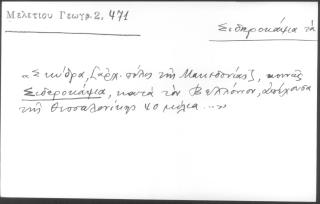 Μελετίου Γεωγρ. 2, 471
Σιδεροκάψια τὰ
«Σκύδρα, [ἀρχ. πόλις τῆς Μακεδονίας], κοινῶς
Σιδεροκάψια, κατὰ τὸν Βελλόνιον, ἀπέχουσα
τῆς Θεσσαλονίκης 40 μίλια...»